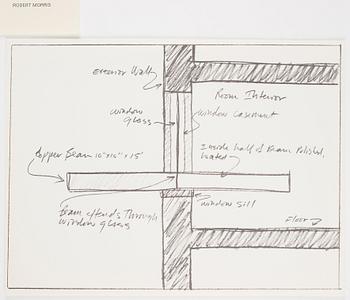 ROBERT MORRIS
Exterior Wall
Room Interior
window
glass
window casement
Inside half of Beam Polished,
heated
Copper Beam 12"x12" x 15'
Beam extends through
window glass
window sill
Floor